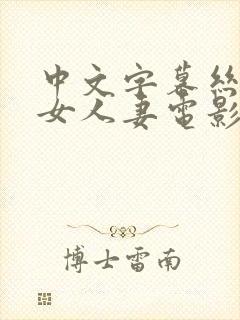 中文字幕丝
女人妻电影
博士雷南